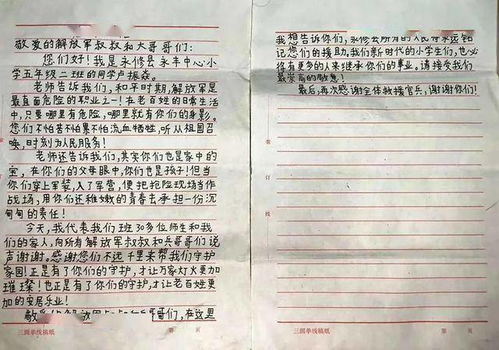 敬爱的解放军叔叔和大哥哥们:
您们好!我是永修县永丰中心小
学五年级二班的同学卢振焱。
老师告诉我们,和平时期,解放军是
最直面危险的职业之一!在老百姓的日常生活
中,只要哪里有危险,哪里就有你们的身影。
您们不怕苦不怕累不怕流血牺牲,听从祖国召
唤,时刻为人民服务!
老师还告诉我们,其实你们也是家中的
宝,在你们的父母眼中,你们也是孩子!但当
你们穿上军装,入了军营,便把抢险现场当作
战场,用你们还稚嫩的青春去承担一份沉
甸甸的责任!
今天,我代表我们班30多位师生和我
们的家人,向所有解放军叔叔和兵哥哥们说
声谢谢,感谢您们不远千里来帮我们守护
家园!正是有了你们的守护,才让万家灯火更加
璀璨!也正是有了你们的守护,才让老百姓更
加的安居乐业!
敬 哥们,在这里
三圆单线稿纸 第 页
我想告诉你们,永修县所有的人民将永远铭
记您们的援助,我们新时代的小学生们,也必
将有更多的人来继承你们的事业。请接受我们
最崇高的敬意!
最后,再次感谢全体救援官兵,谢谢你们!
装
订
线
三圆单线稿纸 第 页